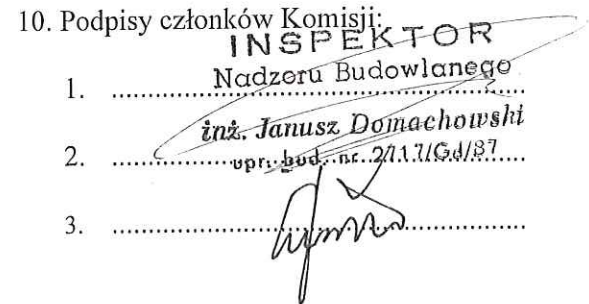 10. Podpisy członków Komisji:
INSPEKTOR
Nadzoru Budowlanego
1. ........................................................
inż. Janusz Domachowski
2. ........................................................
upr. bud. nr. 2717/Gd/87
3. ........................................................